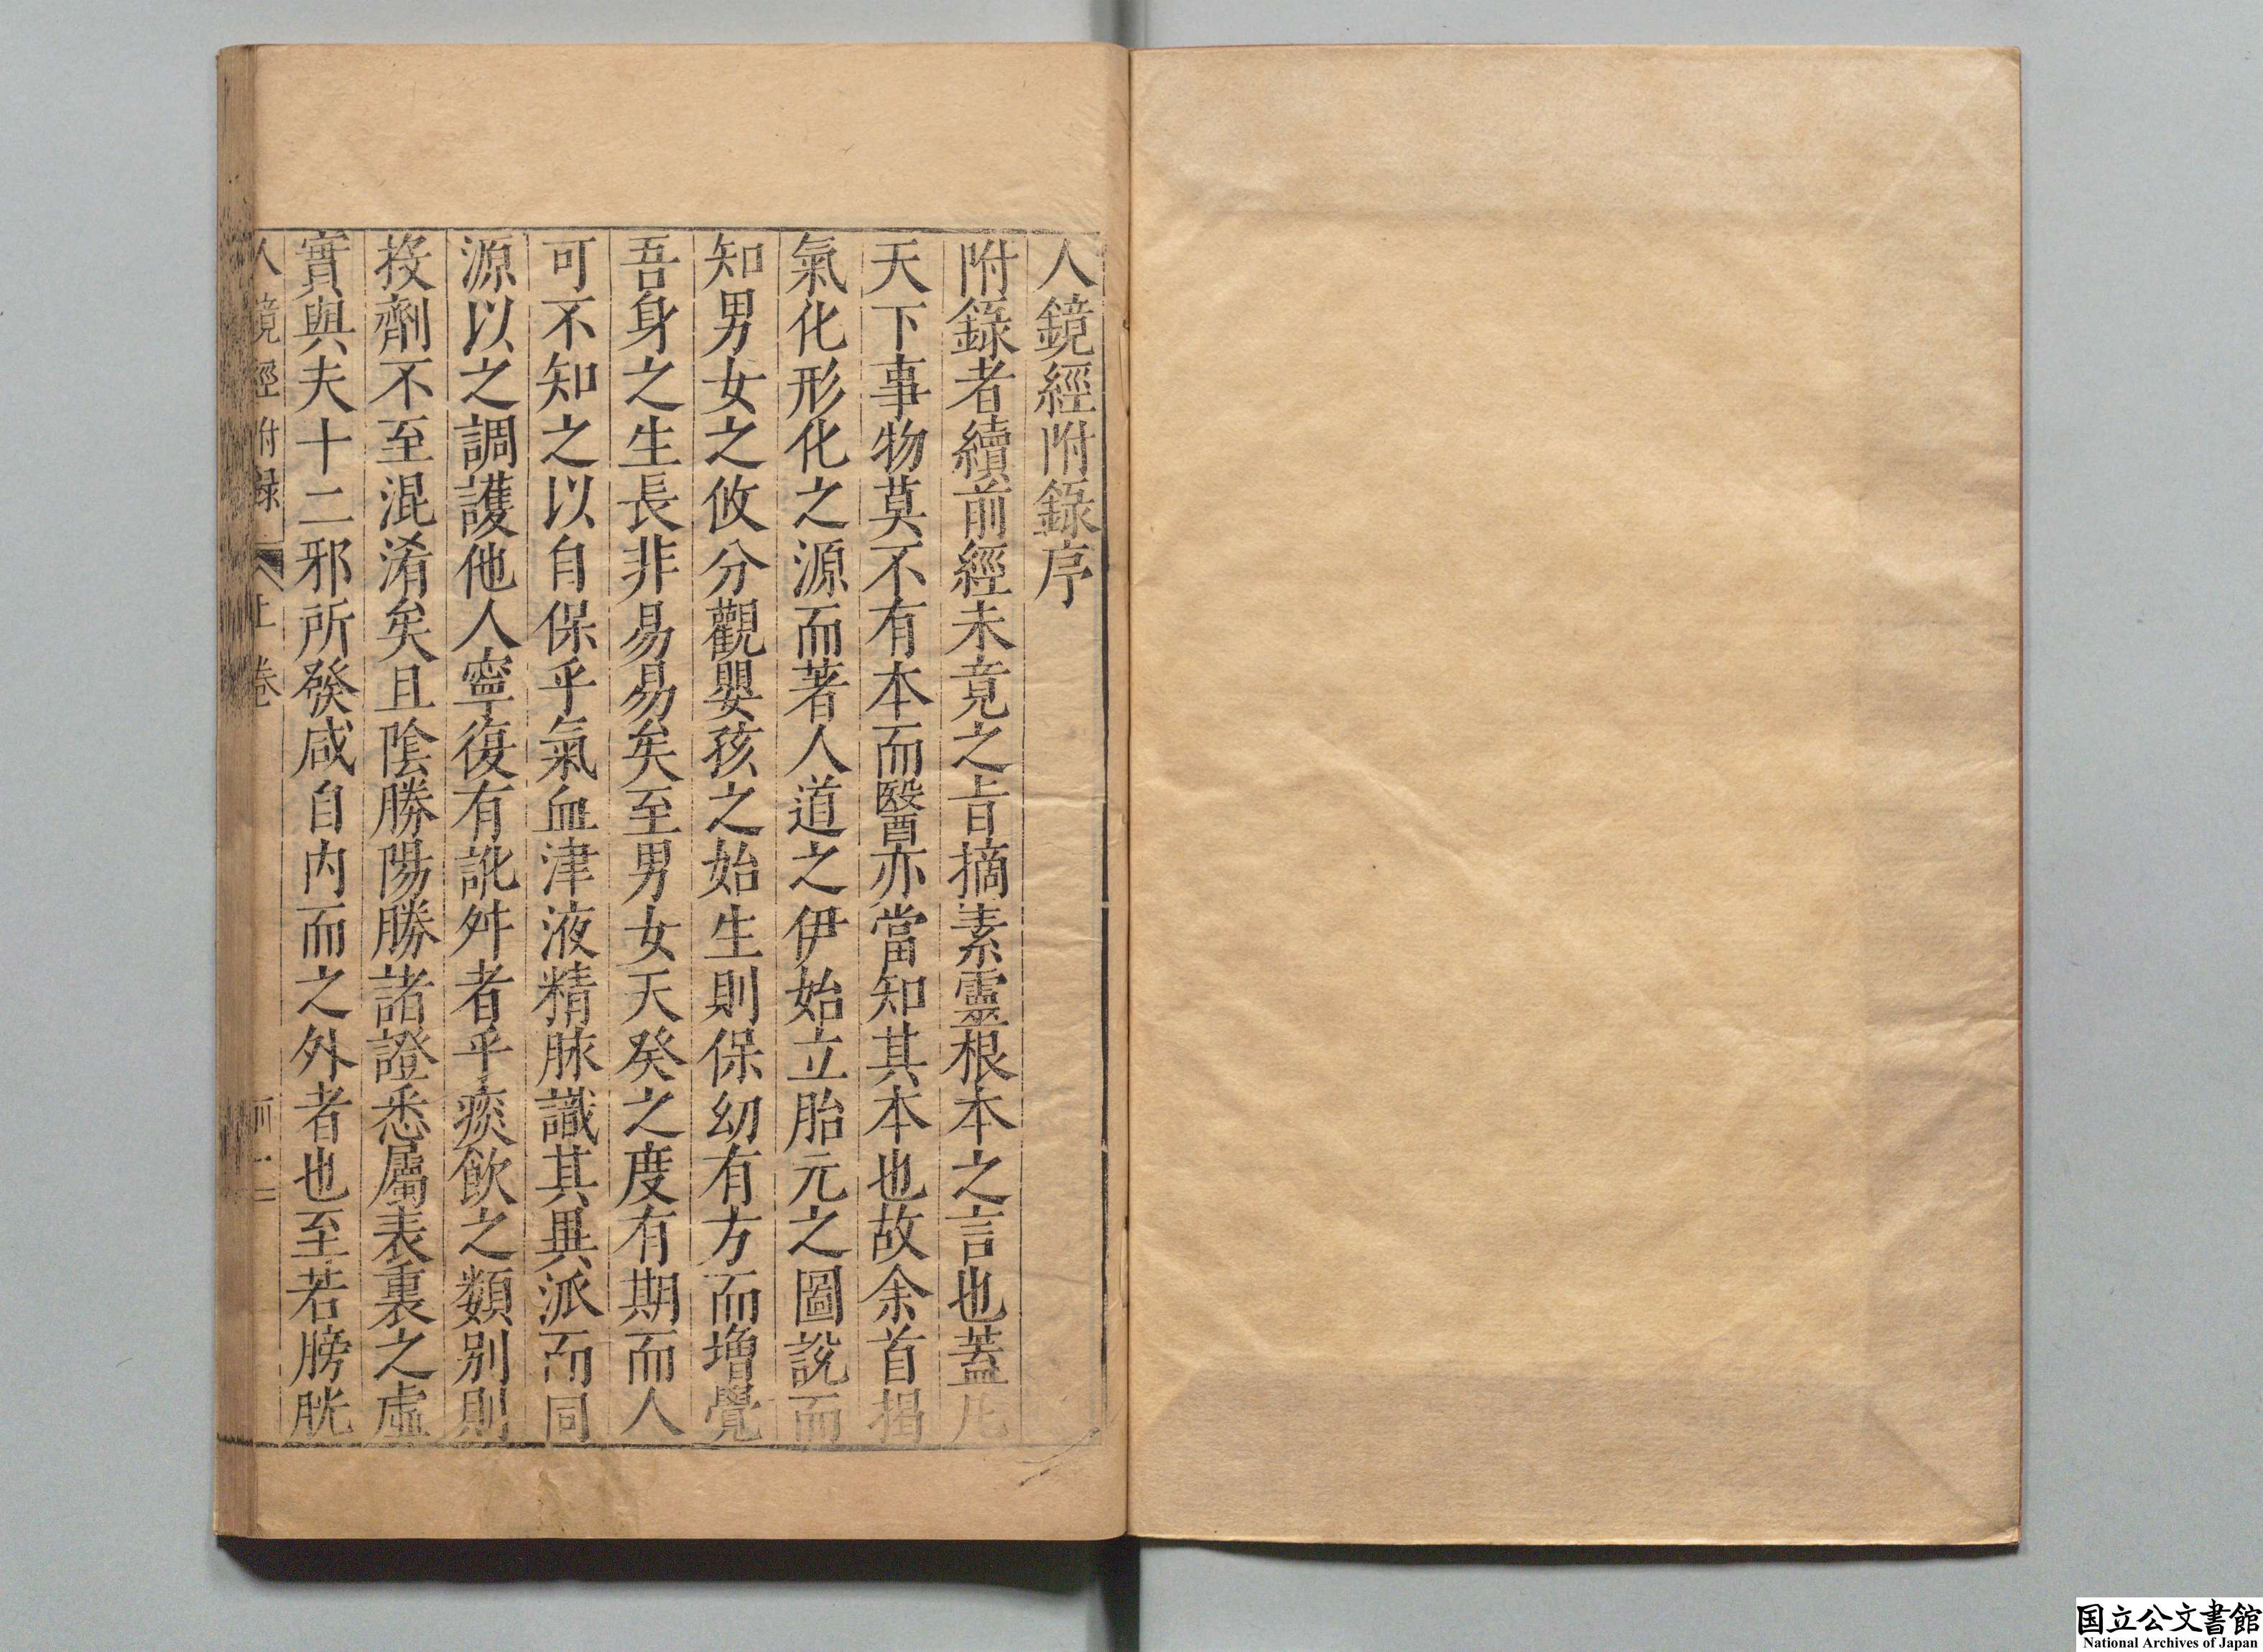 人鏡經附錄序
附錄者續前經未竟之旨摘素靈根本之言也蓋凡
天下事物莫不有本而醫亦當知其本也故余首揭
氣化形化之源而著人道之伊始立胎元之圖說而
知男女之攸分觀嬰孩之始生則保幼有方而增覺
吾身之生長非易易矣至男女天癸之度有期而人
可不知之以自保乎氣血津液精脉識其異派而同
源以之調護他人寧復有訛舛者乎痰飲之類別則
投劑不至混淆矣且陰勝陽勝諸證悉屬表裏之虛
實與夫十二邪所發咸自內而之外者也至若膀胱
人鏡經附録 上卷
国立公文書館
National Archives of Japan